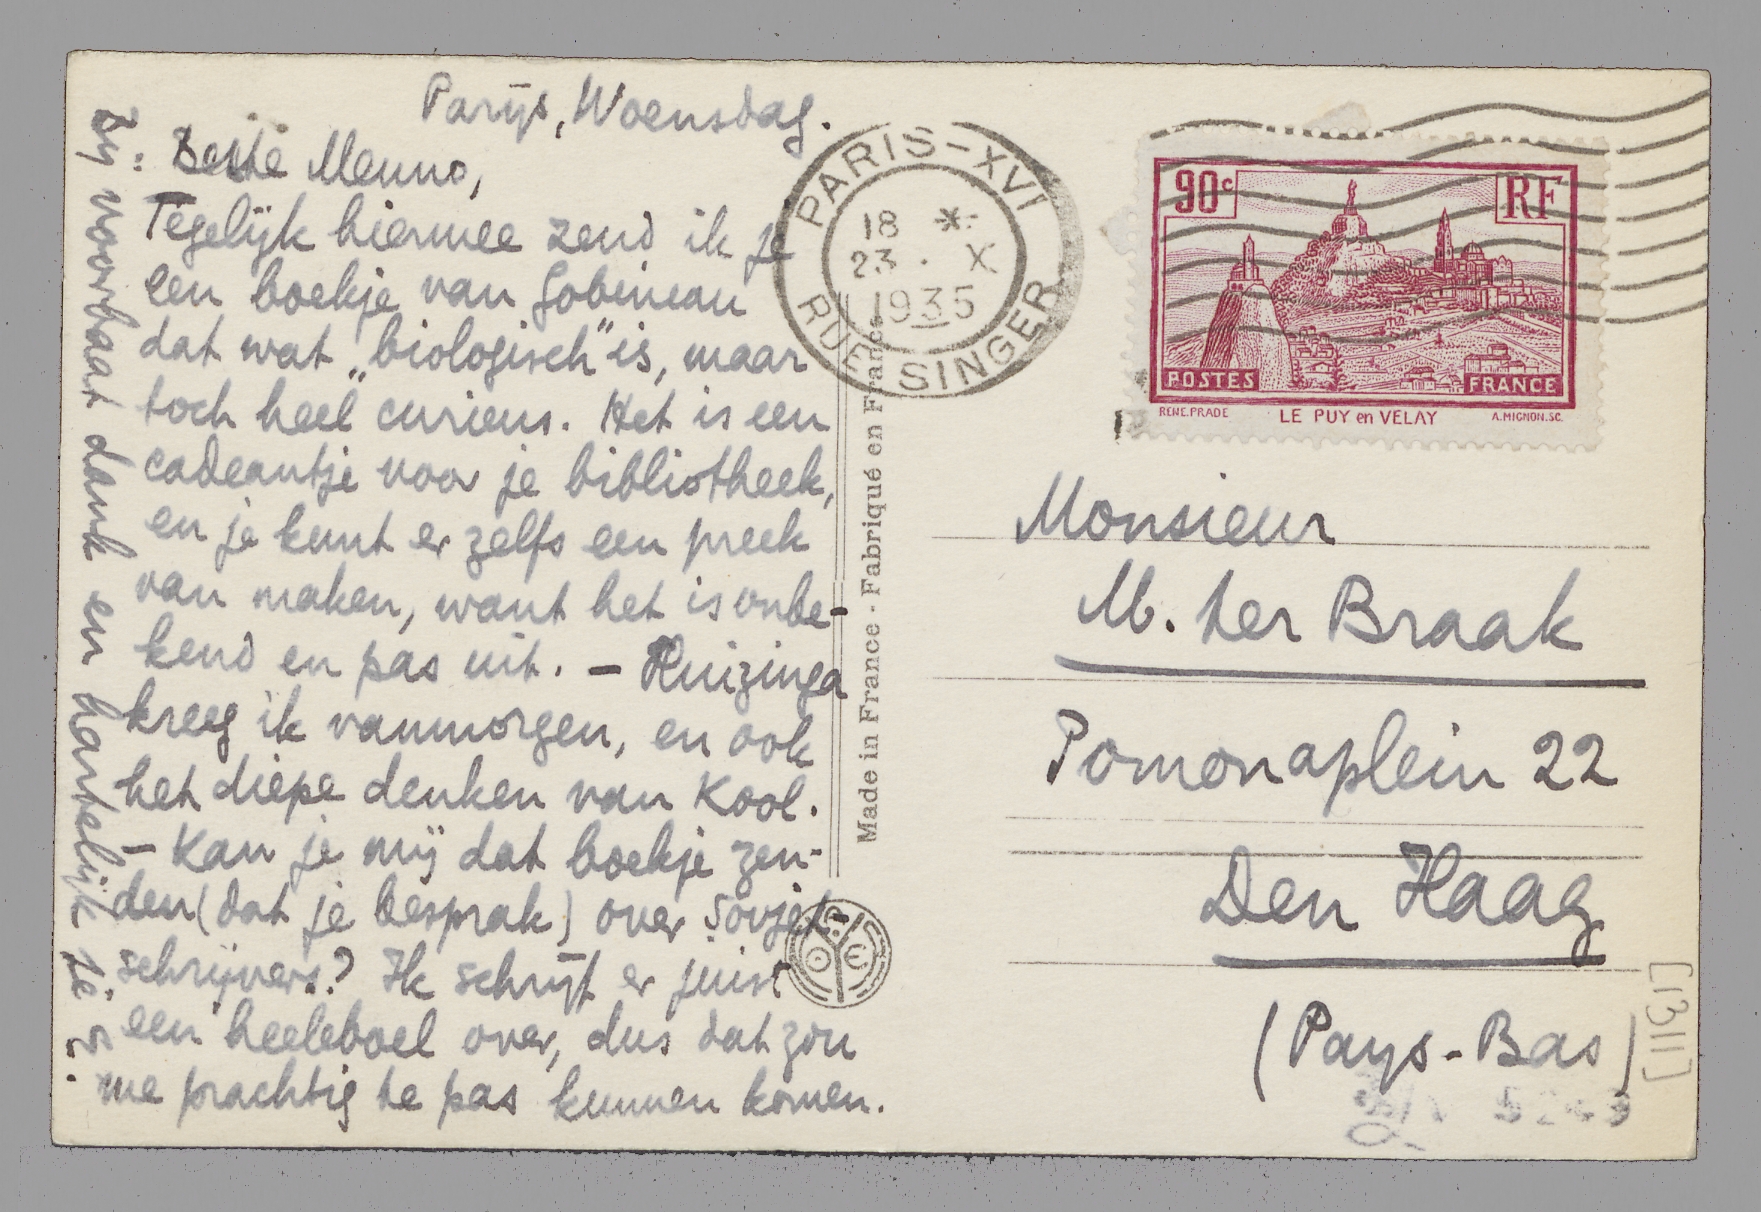 Parijs, Woensdag.
Beste Menno,
Tegelijk hiermee zend ik je
een boekje van Gobineau
dat wat „biologisch" is, maar
toch heel curieus. Het is een
cadeautje voor je bibliotheek,
en je kunt er zelfs een preek
van maken, want het is onbe-
kend en pas uit. – Huizinga
kreeg ik vanmorgen, en ook
het diepe denken van Kool.
– Kan je mij dat boekje zen-
den (dat je besprak) over Sovjet-
schrijvers? Ik schrijf er juist
een heeleboel over, dus dat zou
me prachtig te pas kunnen komen.
Bij voorbaat dank en hartelijk je
E.
PARIS-XVI
18 *
23 . X
1935
RUE SINGER
90c RF
POSTES FRANCE
RENE.PRADE LE PUY en VELAY A.MIGNON.SC.
Made in France - Fabriqué en France
Monsieur
M. ter Braak
Pomonaplein 22
Den Haag
(Pays-Bas)
[1311]